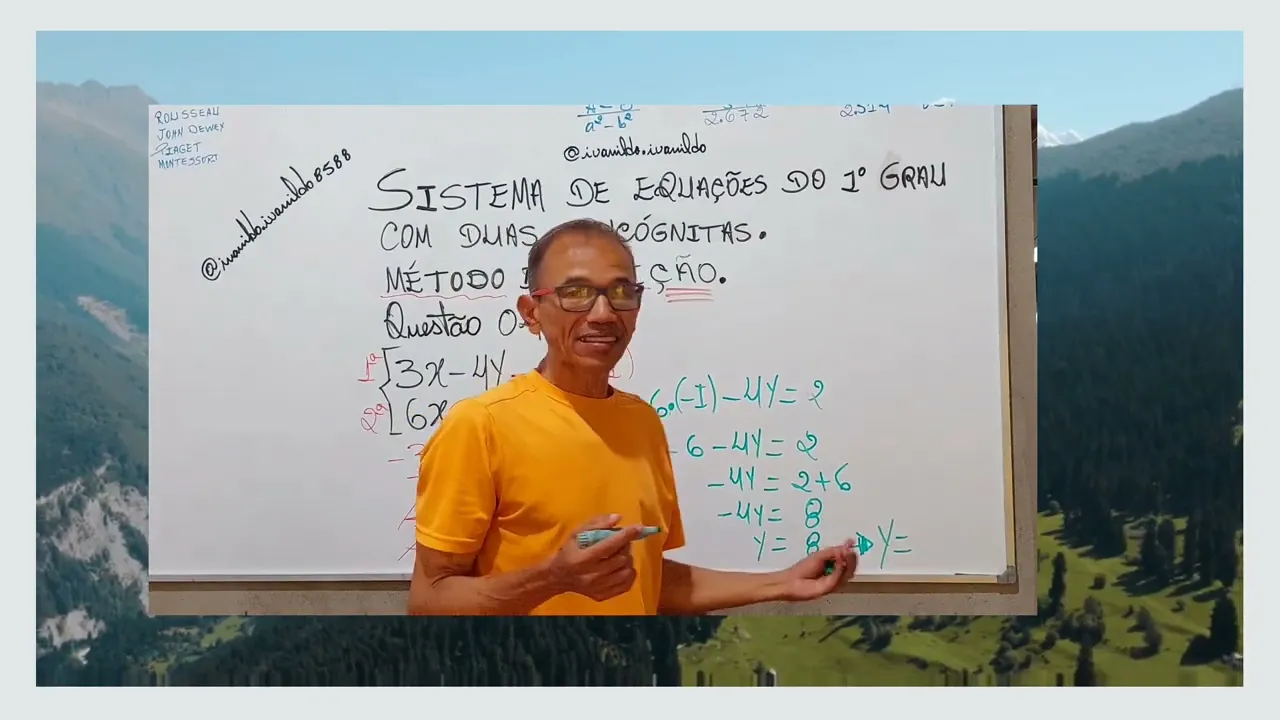 ROUSSEAU
JOHN DEWEY
PIAGET
MONTESSORI
a²-b²
2.672
2.314
@ivanildo.ivanildo
@ivanildoivanildo8588
SISTEMA DE EQUAÇÕES DO 1º GRAU
COM DUAS CÓGNITAS.
MÉTODO ÇÃO.
Questão
1ª 3x-4y
2ª 6x
6.(-1)-4y=2
-6-4y=2
-4y=2+6
-4y=8
y=8 → y=